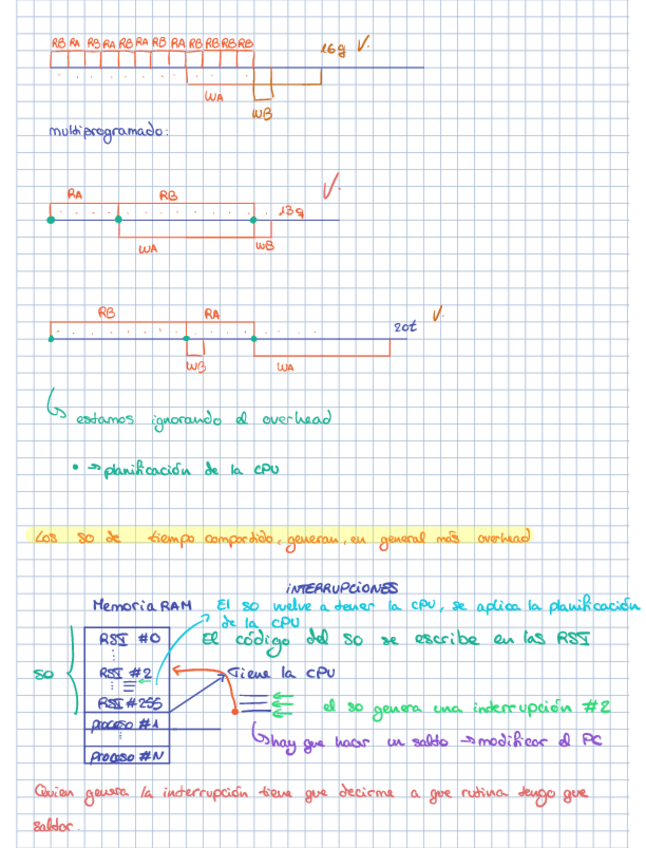 RB RA RB RA RB RA RB RA RB RB RB RB
16g V.
WA
WB
multiprogramado:
RA RB V.
13g
WA WB
RB RA V.
20t
WB WA
estamos ignorando el overhead
• → planificación de la CPU
Los SO de tiempo compartido, generan, en general más overhead
INTERRUPCIONES
Memoria RAM El SO vuelve a tener la CPU, se aplica la planificación
de la CPU
RSI #0 El código del SO se escribe en las RSI
SO RSI #2 Tiene la CPU
RSI #255 el SO genera una interrupción #2
proceso #1
hay que hacer un salto → modificar el PC
proceso #N
Quien genera la interrupción tiene que decirme a que rutina tengo que
saltar.